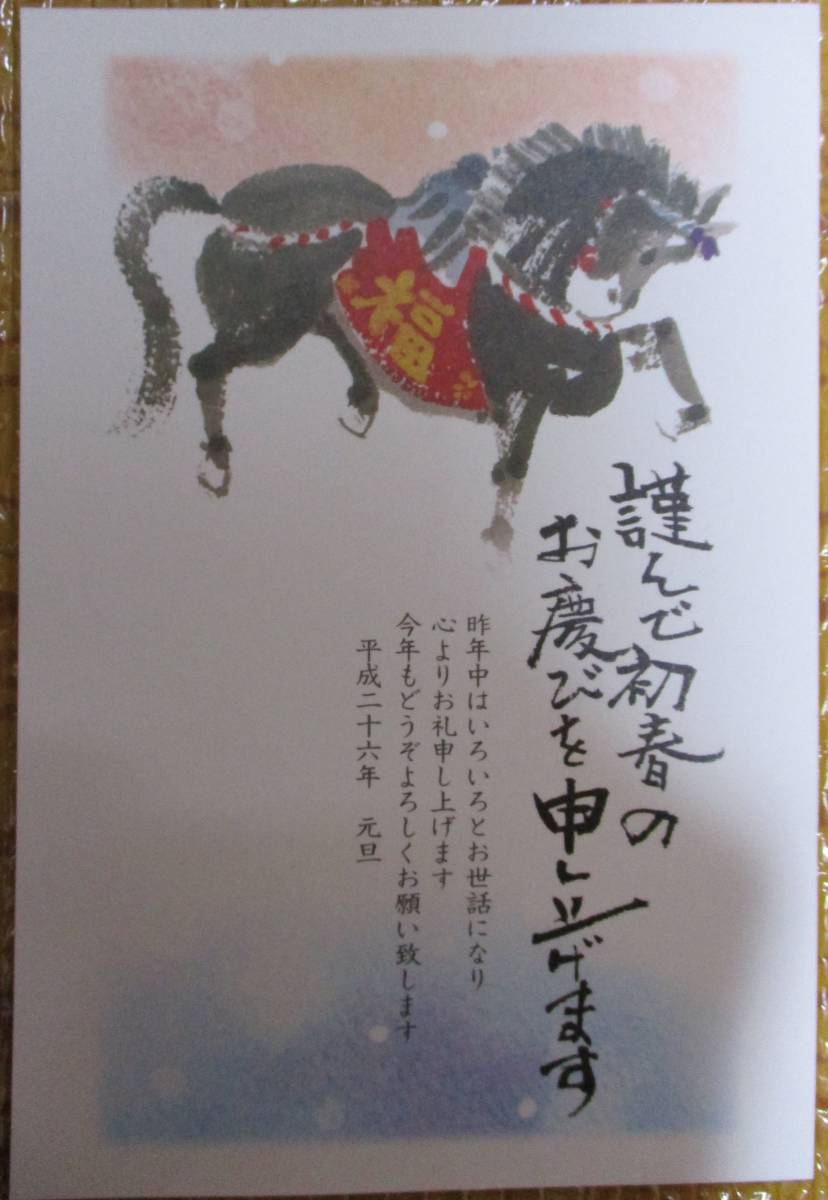 福
謹んで初春の
お慶びを申し上げます
昨年中はいろいろとお世話になり
心よりお礼申し上げます
今年もどうぞよろしくお願い致します
平成二十六年　元旦